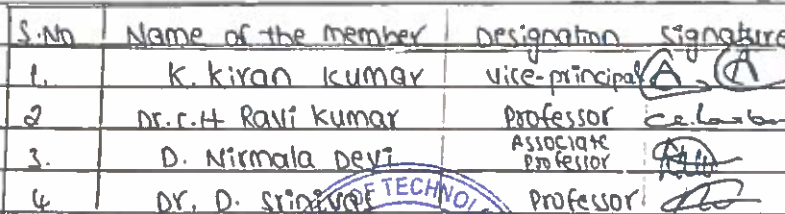 S.No Name of the member Designation signature
1. K. Kiran Kumar vice-principal
2 Dr. C.H Ravi Kumar Professor
3. D. Nirmala Devi Associate Professor
4 Dr. D. Srinivas Professor
OF TECHNOL